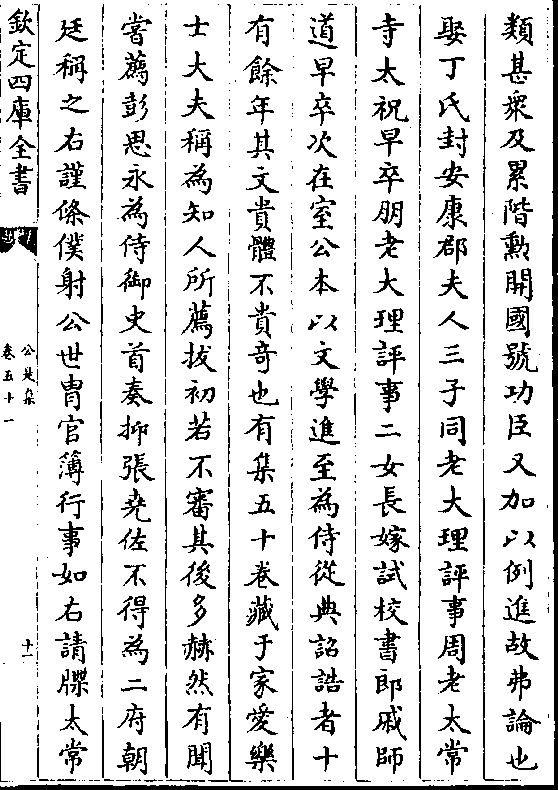 類甚衆及累階勲開國號功臣又加以例進故弗論也
娶丁氏封安康郡夫人三子同老大理評事周老太常
寺太祝早卒朋老大理評事二女長嫁試校書郎戚師
道早卒次在室公本以文學進至為侍從典詔誥者十
有餘年其文貴體不貴奇也有集五十卷藏于家愛樂
士大夫稱為知人所薦拔初若不審其後多赫然有聞
嘗薦彭思永為侍御史首奏抑張堯佐不得為二府朝
廷稱之右謹條僕射公世胄官簿行事如右請牒太常
欽定四庫全書
公是集
卷五十一
十一